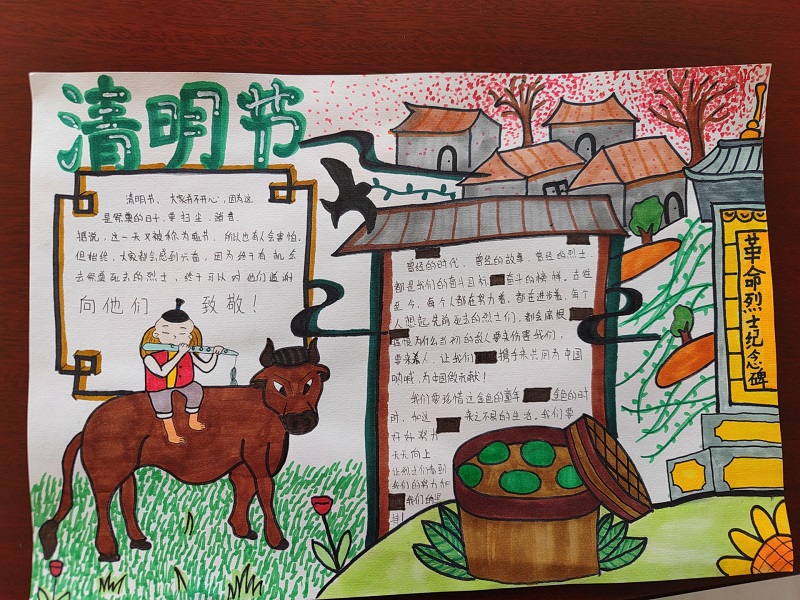 清明节
清明节，大家都不开心，因为这
是祭奠的日子，要扫尘、踏青
据说，这一天又被称为鬼节，所以也有人会害怕
但相经，大家都会感到兴奋，因为终于有机会
去祭奠死去的烈士，终于可以对他们道谢
向他们 致敬！
曾经的时代，曾经的故事，曾经的烈士，
都是我们的奋斗目标 奋斗的榜样。古往
至今，每个人都在努力着，都在进步着，每个
人想起先前死去的烈士们，都会肃根
为什么当初的敌人要来伤害我们，
要来 人，让我们 携手来共同为中国
呐喊，为中国做贡献！
我们要珍惜这金色的童年 金色的时
时，如这 来之不易的生活。我们要
好好努力
天天向上
让烈士们看到
我们的努力和
我们
革命烈士纪念碑